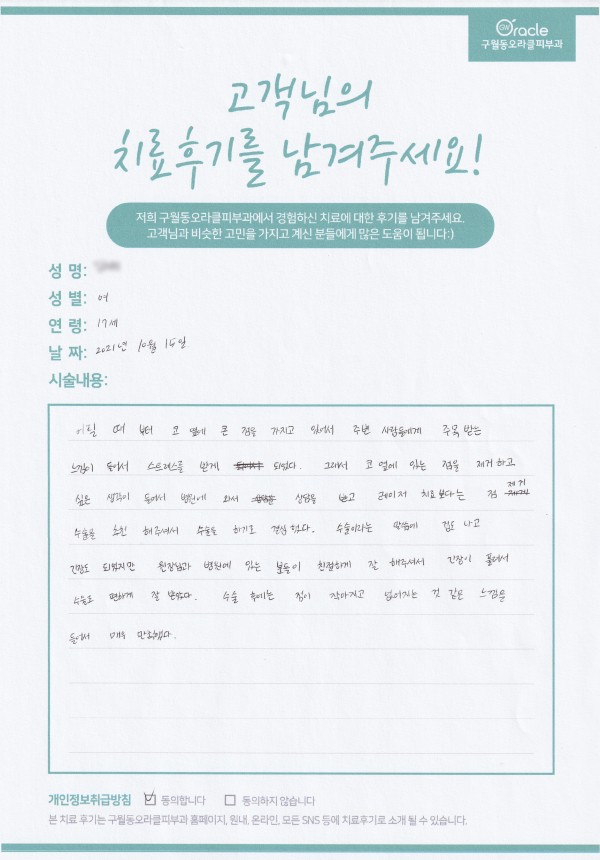 Oracle
구월동오라클피부과
고객님의
치료후기를 남겨주세요!
저희 구월동오라클피부과에서 경험하신 치료에 대한 후기를 남겨주세요.
고객님과 비슷한 고민을 가지고 계신 분들에게 많은 도움이 됩니다:)
성 명:
성 별: 여
연 령: 17세
날 짜: 2021년 10월 14일
시술내용:
어릴 때 부터 코 옆에 큰 점을 가지고 있어서 주변 사람들에게 주목 받는
느낌이 들어서 스트레스를 받게 되었다. 그래서 코 옆에 있는 점을 제거 하고
싶은 생각이 들어서 병원에 와서 상담을 받고 레이저 치료보다는 점 제거
수술을 추천 해주셔서 수술을 하기로 결심 했다. 수술이라는 말씀에 겁도 나고
긴장도 되었지만 원장님과 병원에 있는 분들이 친절하게 잘 해주셔서 긴장이 풀려서
수술도 편하게 잘 받았다. 수술 후에는 점이 작아지고 없어지는 것 같은 느낌을
들어서 매우 만족했다.
개인정보취급방침 동의합니다 동의하지 않습니다
본 치료 후기는 구월동오라클피부과 홈페이지, 원내, 온라인, 모든 SNS 등에 치료후기로 소개 될 수 있습니다.